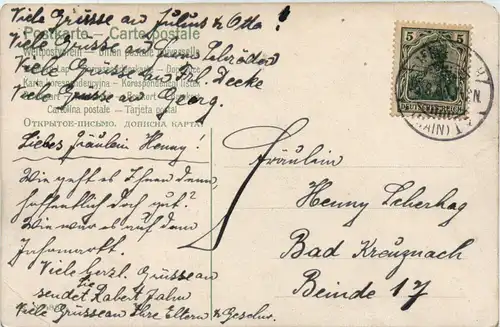 Viele Grüsse an Julius u Otto!
Postkarte — Carte postale
Viele Grüsse an Fam Schröder
Weltpostverein — Union postale universelle
Viele Grüsse an Frl. Decke
Karta korespondencyjna — Korespondenční lístek
Viele Grüsse an Georg.
Cartolina postale — Tarjeta postal
Открытое письмо. Дописна карта
Liebes Fräulein Henny!
Wie geht es Ihnen denn,
hoffentlich doch gut?
Wie war es auf dem
Jahrmarkt.
Viele herzl. Grüsse an
Sie
sendet Robert Jahn
Viele Grüsse an Ihre Eltern u Geschw.
5 5
DEUTSCHES REICH
(MAIN)
Fräulein
Henny
Bad Kreuznach
Beinde 17